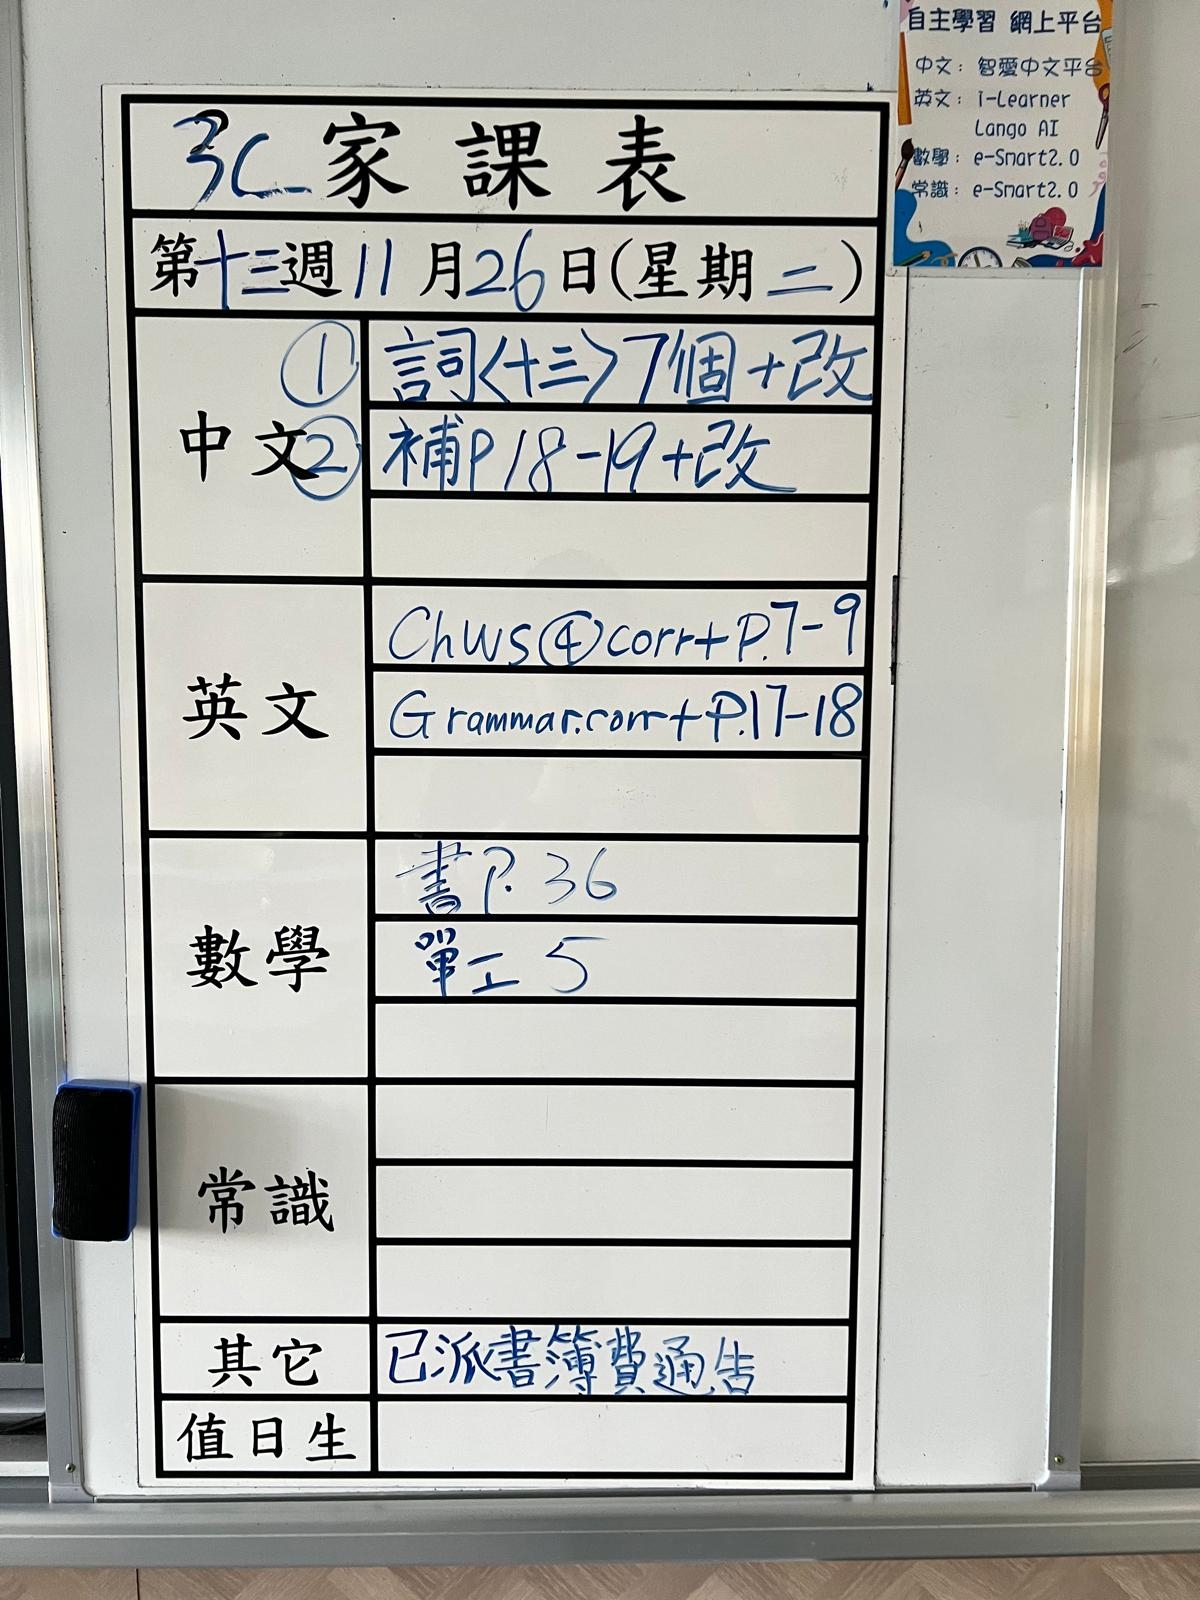 自主學習 網上平台
中文：智愛中文平台
英文：i-Learner
Lango AI
數學：e-Smart2.0
常識：e-Smart2.0
3C 家課表
第十三週11月26日(星期二)
中文
① 詞〈十三〉7個+改
② 補P18-19+改
英文
Chws④corr+P.7-9
Grammar.corr+P.17-18
數學
書P.36
單工5
常識
其它 已派書簿費通告
值日生